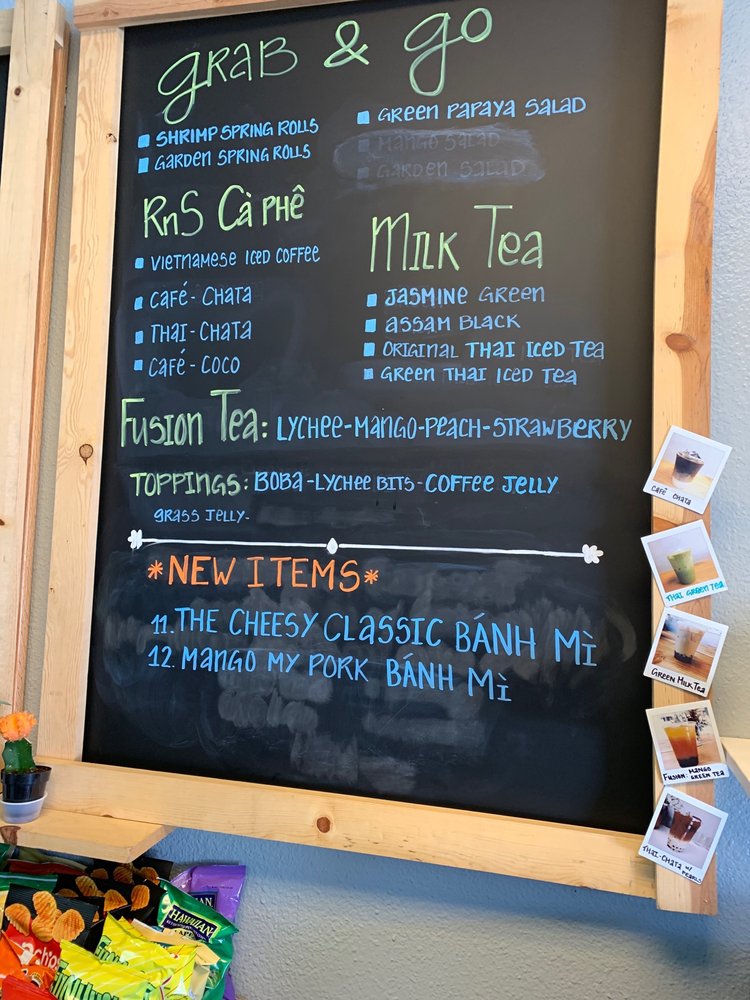 GRAB & GO
SHRIMP SPRING ROLLS
GARDEN SPRING ROLLS
GREEN PAPAYA SALAD
MANGO SALAD
GARDEN SALAD
RnS Cà PHÊ
VIETNAMESE ICED COFFEE
CAFÉ - CHATA
THAI - CHATA
CAFÉ - COCO
MILK Tea
JASMINE GREEN
ASSAM BLACK
ORIGINAL THAI ICED TEA
GREEN THAI ICED TEA
FUSION Tea: LYCHEE-MANGO-PEACH-STRAWBERRY
TOPPINGS: BOBA-LYCHEE BITS-COFFEE JELLY
GRASS JELLY-
*NEW ITEMS*
11. THE CHEESY CLASSIC BÁNH MÌ
12. MANGO MY PORK BÁNH MÌ
CAFÉ CHATA
THAI GREEN TEA
GREEN MILK TEA
FUSION: MANGO GREEN TEA
THAI-CHATA w/ PEARLS
HAWAIIAN